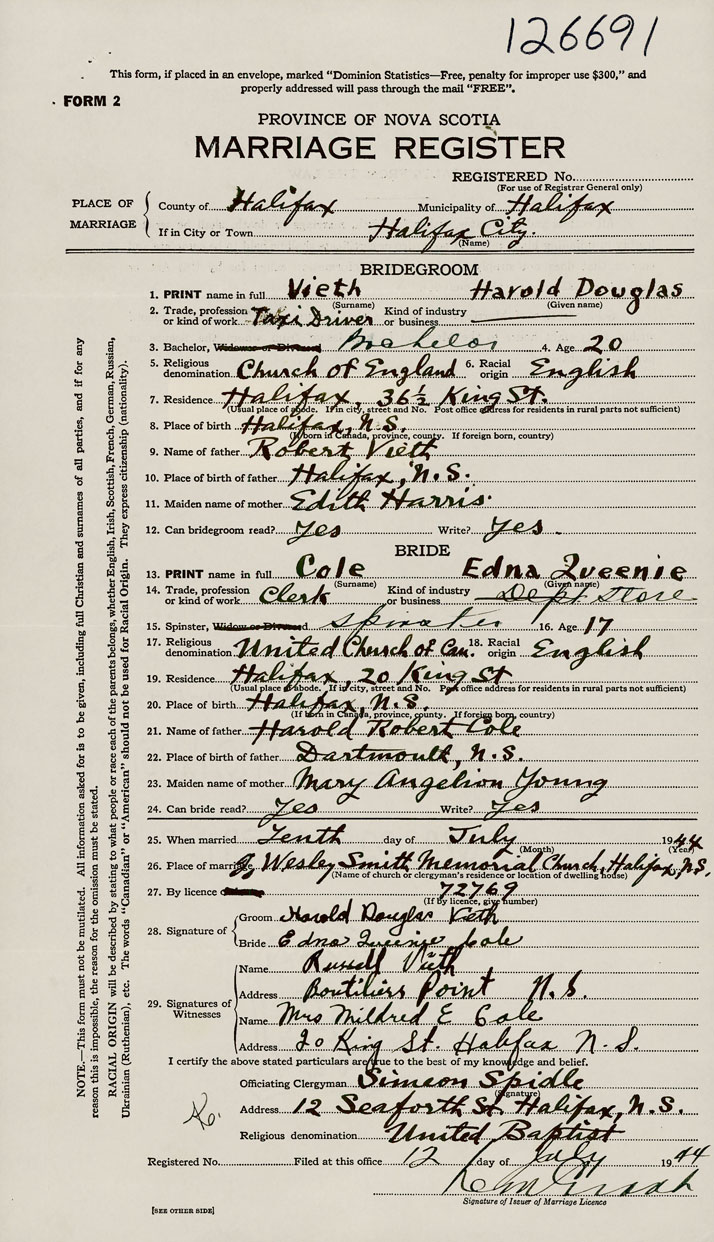 126691
This form, if placed in an envelope, marked “Dominion Statistics—Free, penalty for improper use $300,” and
properly addressed will pass through the mail “FREE”.
FORM 2
PROVINCE OF NOVA SCOTIA
MARRIAGE REGISTER
REGISTERED No.
(For use of Registrar General only)
PLACE OF MARRIAGE
County of Halifax Municipality of Halifax
If in City or Town Halifax City.
(Name)
BRIDEGROOM
1. PRINT name in full Vieth Harold Douglas
(Surname) (Given name)
2. Trade, profession or kind of work Taxi Driver Kind of industry or business
3. Bachelor, Widower or Divorced Bachelor 4. Age 20
5. Religious denomination Church of England 6. Racial origin English
7. Residence Halifax, 36½ King St.
(Usual place of abode. If in city, street and No. Post office address for residents in rural parts not sufficient)
8. Place of birth Halifax, N.S.
(If born in Canada, province, county. If foreign born, country)
9. Name of father Robert Vieth
10. Place of birth of father Halifax, N.S.
11. Maiden name of mother Edith Harris.
12. Can bridegroom read? Yes Write? Yes.
BRIDE
13. PRINT name in full Cole Edna Queenie
(Surname) (Given name)
14. Trade, profession or kind of work Clerk Kind of industry or business Dept. Store
15. Spinster, Widow or Divorced Spinster 16. Age 17
17. Religious denomination United Church of Can. 18. Racial origin English
19. Residence Halifax, 20 King St
(Usual place of abode. If in city, street and No. Post office address for residents in rural parts not sufficient)
20. Place of birth Halifax, N.S.
(If born in Canada, province, county. If foreign born, country)
21. Name of father Harold Robert Cole
22. Place of birth of father Dartmouth, N.S.
23. Maiden name of mother Mary Angelion Young
24. Can bride read? Yes Write? Yes
25. When married Tenth day of July 1944
(Month) (Year)
26. Place of marriage J. Wesley Smith Memorial Church, Halifax, N.S.
(Name of church or clergyman's residence or location of dwelling house)
27. By licence or 72769
(If by licence, give number)
28. Signature of
Groom Harold Douglas Vieth
Bride Edna Queenie Cole
29. Signatures of Witnesses
Name Russell Vieth
Address Boutiliers Point N.S.
Name Mrs Mildred E Cole
Address 20 King St. Halifax N.S.
I certify the above stated particulars are true to the best of my knowledge and belief.
Officiating Clergyman Simeon Spidle
(Signature)
Address 12 Seaforth St. Halifax, N.S.
Religious denomination United Baptist
Registered No. Filed at this office 12 day of July 1944
Signature of Issuer of Marriage Licence
[SEE OTHER SIDE]
NOTE.—This form must not be mutilated. All information asked for is to be given, including full Christian and surnames of all parties, and if for any
reason this is impossible, the reason for the omission must be stated.
RACIAL ORIGIN will be described by stating to what people or race each of the parents belongs, whether English, Irish, Scottish, French, German, Russian,
Ukrainian (Ruthenian), etc. The words “Canadian” or “American” should not be used for Racial Origin. They express citizenship (nationality).